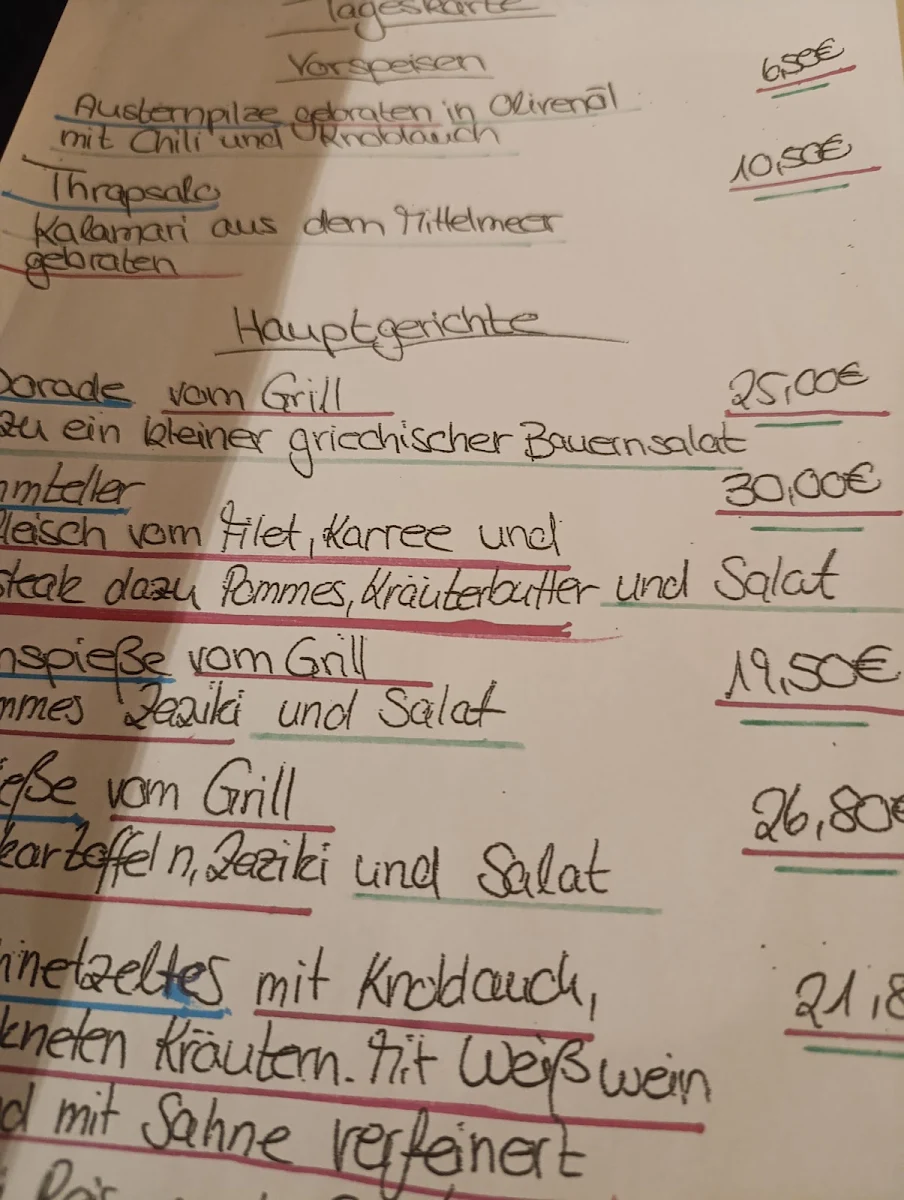 Tageskarte
Vorspeisen
6,50€
Austernpilze gebraten in Olivenöl
mit Chili und Knoblauch
10,50€
Thrapsalo
Kalamari aus dem Mittelmeer
gebraten
Hauptgerichte
Dorade vom Grill 25,00€
zu ein kleiner griechischer Bauernsalat
mteller 30,00€
leisch vom Filet, Karree und
steak dazu Pommes, Kräuterbutter und Salat
nspieße vom Grill 19,50€
mmes Zaziki und Salat
eße vom Grill 26,80€
kartoffeln, Zaziki und Salat
hnetzeltes mit Knoblauch, 21,8
kneten Kräutern. Mit Weißwein
d mit Sahne verfeinert